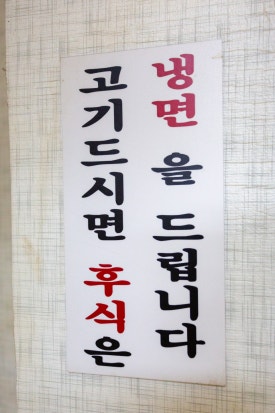 고기드시면 후식은
냉면을 드립니다